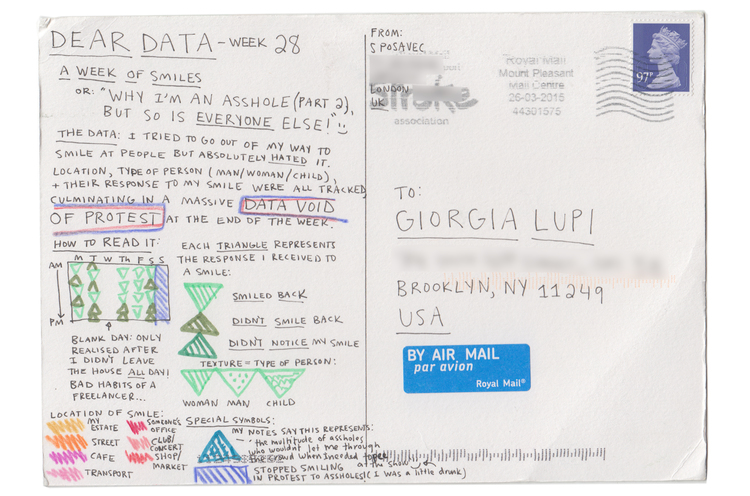 DEAR DATA - WEEK 28
A WEEK OF SMILES
OR: "WHY I'M AN ASSHOLE (PART 2),
BUT SO IS EVERYONE ELSE!"
THE DATA: I TRIED TO GO OUT OF MY WAY TO
SMILE AT PEOPLE BUT ABSOLUTELY HATED IT.
LOCATION, TYPE OF PERSON (MAN/WOMAN/CHILD),
+ THEIR RESPONSE TO MY SMILE WERE ALL TRACKED
CULMINATING IN A MASSIVE DATA VOID
OF PROTEST AT THE END OF THE WEEK.
HOW TO READ IT:
M T W Th F S S
AM
PM
BLANK DAY: ONLY
REALISED AFTER
I DIDN'T LEAVE
THE HOUSE ALL DAY!
BAD HABITS OF A
FREELANCER...
EACH TRIANGLE REPRESENTS
THE RESPONSE I RECEIVED TO
A SMILE:
SMILED BACK
DIDN'T SMILE BACK
DIDN'T NOTICE MY SMILE
TEXTURE = TYPE OF PERSON:
WOMAN MAN CHILD
LOCATION OF SMILE:
MY
ESTATE
STREET
CAFE
TRANSPORT
SOMEONE'S
OFFICE
CLUB/
CONCERT
SHOP/
MARKET
SPECIAL SYMBOLS:
MY NOTES SAY THIS REPRESENTS:
"the multitude of assholes
who wouldn't let me through
when I needed to pee
at the show"
(I was a little drunk)
STOPPED SMILING
IN PROTEST TO ASSHOLES
FROM:
S POSAVEC
LONDON
UK
stroke
association
Royal Mail
Mount Pleasant
Mail Centre
26-03-2015
44301575
97P
TO:
GIORGIA LUPI
BROOKLYN, NY 11249
USA
BY AIR MAIL
par avion
Royal Mail®